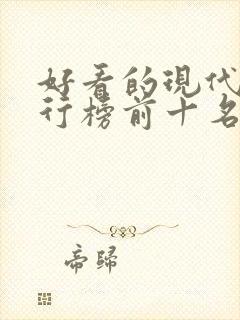 好看的现代
行榜前十名
帝归